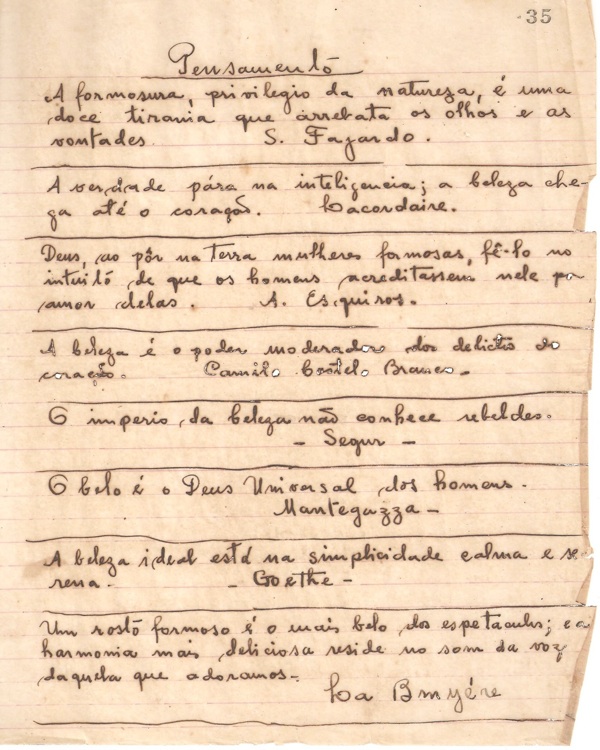 35
Pensamento
A formosura, privilegio da natureza, é uma
doce tirania que arrebata os olhos e as
vontades. S. Fajardo.
A verdade pára na inteligencia; a beleza che-
ga até o coração. Lacordaire.
Deus, ao pôr na terra mulheres formosas, fê-lo no
intuito de que os homens acreditassem nele por
amor delas. A. Esquiros.
A beleza é o poder moderador dos delictos do
coração. Camilo Castelo Branco-
O imperio da beleza não conhece rebeldes.
- Segur -
O belo é o Deus Universal dos homens.
Mantegazza-
A beleza ideal está na simplicidade calma e se
rena. - Goethe -
Um rosto formoso é o mais belo dos espetaculos; e a
harmonia mais deliciosa reside no som da voz
daquela que adoramos-
La Bruyére